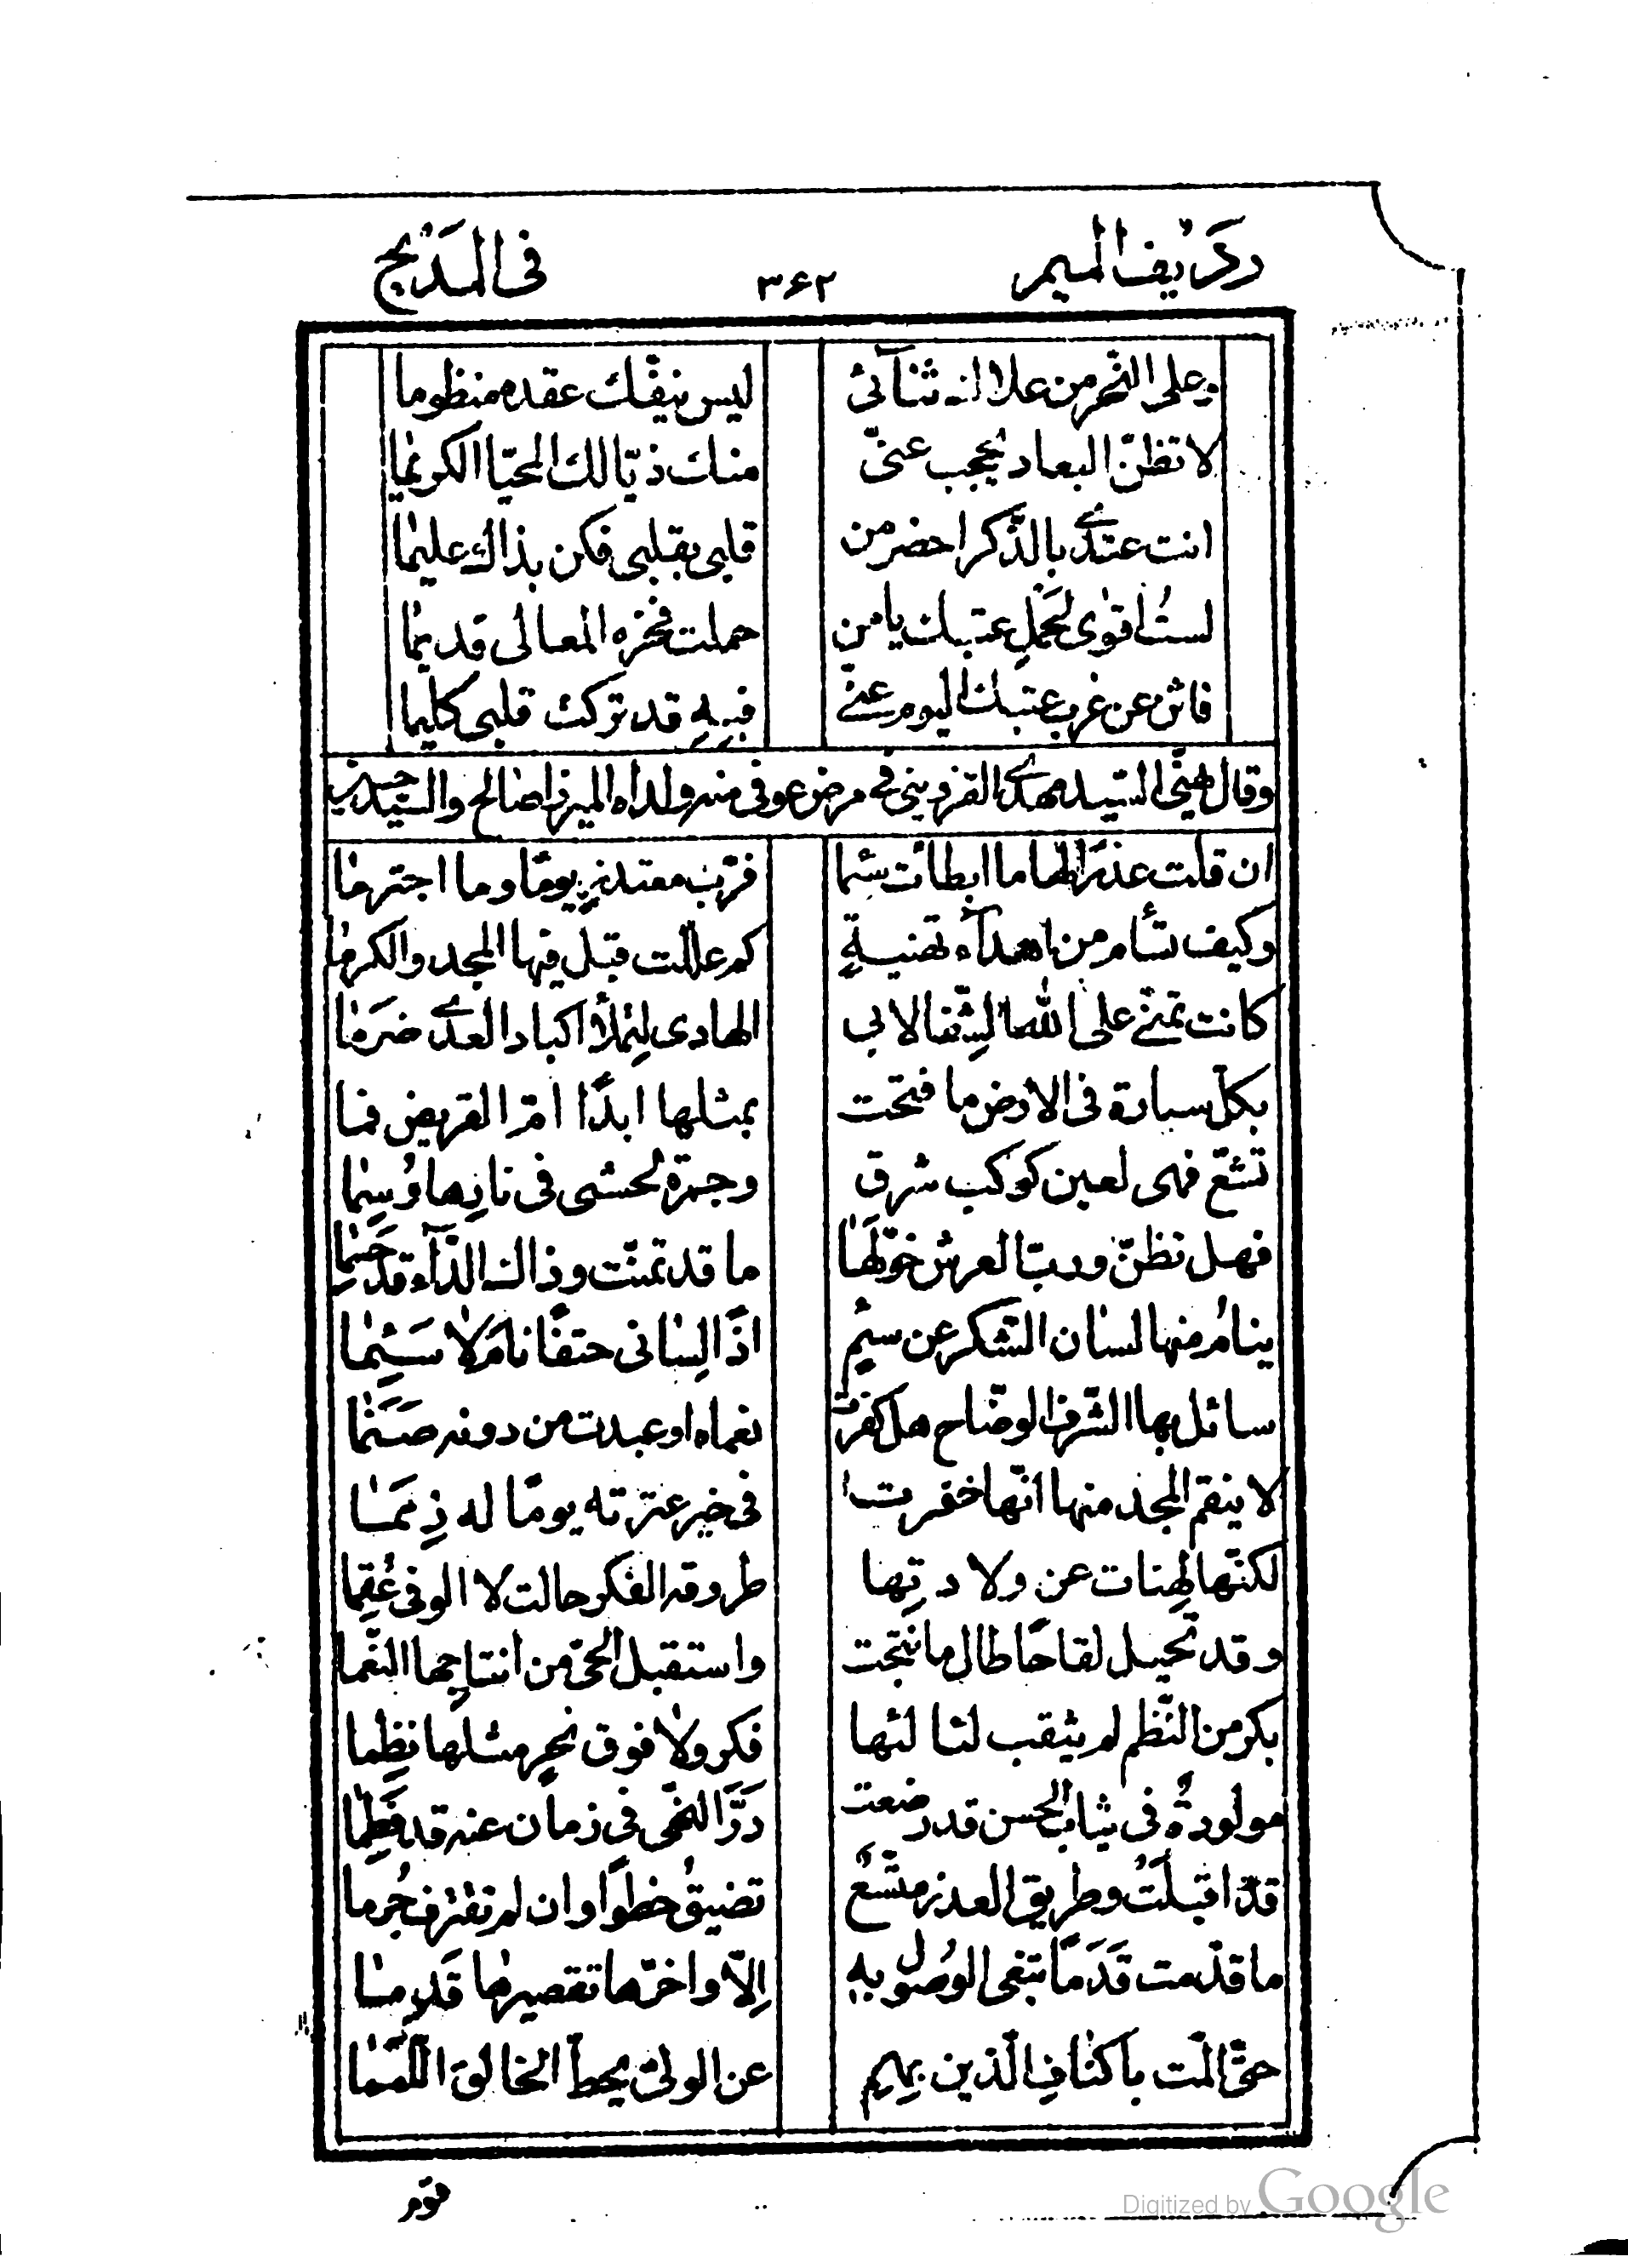 رديف الميم ٣٦٢ في المديح
وعلى النحر من علاك ثنآئى ليس ينفك عقده منظوما
لا تظنّ البعاد يحجب عنّى منك ذيّالك المحيّا الكريما
انت عندى بالذّكر احضر من قلبى بقلبى فكن بذاك عليما
لستُ اقوٰى لحَملِ عتبك يا من حملت فخره المعالى قديما
فاثن عن غرب عتبك اليوم عنّى فبهِ قد تركت قلبى كليما
وقال يهنّى السّيد مهدى القزوينى فى مرض عوفى منه ولداه الميرزا صالح والسّيد حسين
ان قلت عذرًا لها ما ابطأت سئما فربّ معتذرٍ يومًا وما اجترما
وكيف تسأم من اهدآء تهنيةٍ كم علّلت قبل فيها المجد والكرما
كانت تمنّى على اللّه الشِّفا لابى الهادى ليملأ اكباد العدى ضرَما
بكلّ سيارة فى الارض ما فتحت بمثلها ابدًا امّ القريض فما
تشعّ فهى لعين كوكب شرق وجمرة لحشى فى نارِها وُسِما
فهل تظنّ وربّ العرش خوّلَها ما قد تمنّت وذاك الدّآء قد حَسَما
ينامُ منها لسان الشّكر عن سئمٍ اذًا لِسانى حتفًا نامَ لا سَئِما
سائل بها الشّرف الوضّاح هل كفرت نعماه او عبدت من دونه صَنَما
لا ينقم المجد منها انّها خفرت فى خير عترته يومًا له ذِمَما
لكنّها لِهنات عن ولادتِها طروقه الفكر حالت لا الوفى عُقِما
وقد تحيل لقاحًا طال ما نتجت واستقبل الحىّ من انتاجِها النّعما
بكر من النّظم لم يثقب لئالئها فكر ولا فوق نحرٍ مثلها نظِما
مولودةٌ فى ثياب الحسن قد رضعت دَرَّ النّهى فى زمان عنه قد فُطِما
قد اقبلَتْ وطريق العذر متّسعٌ تضيقُ خطوًا وان لم تقترف جُرما
ما قدّمت قَدَمًا تبغى الوُصول بهِ اِلّا واخّرها تقصيرها قَدَما
حتّى المّت باكنافِ الّذين بهِمِ عن الولىّ يحطّ الخالق اللَّمَما
قوم
Digitized by Google